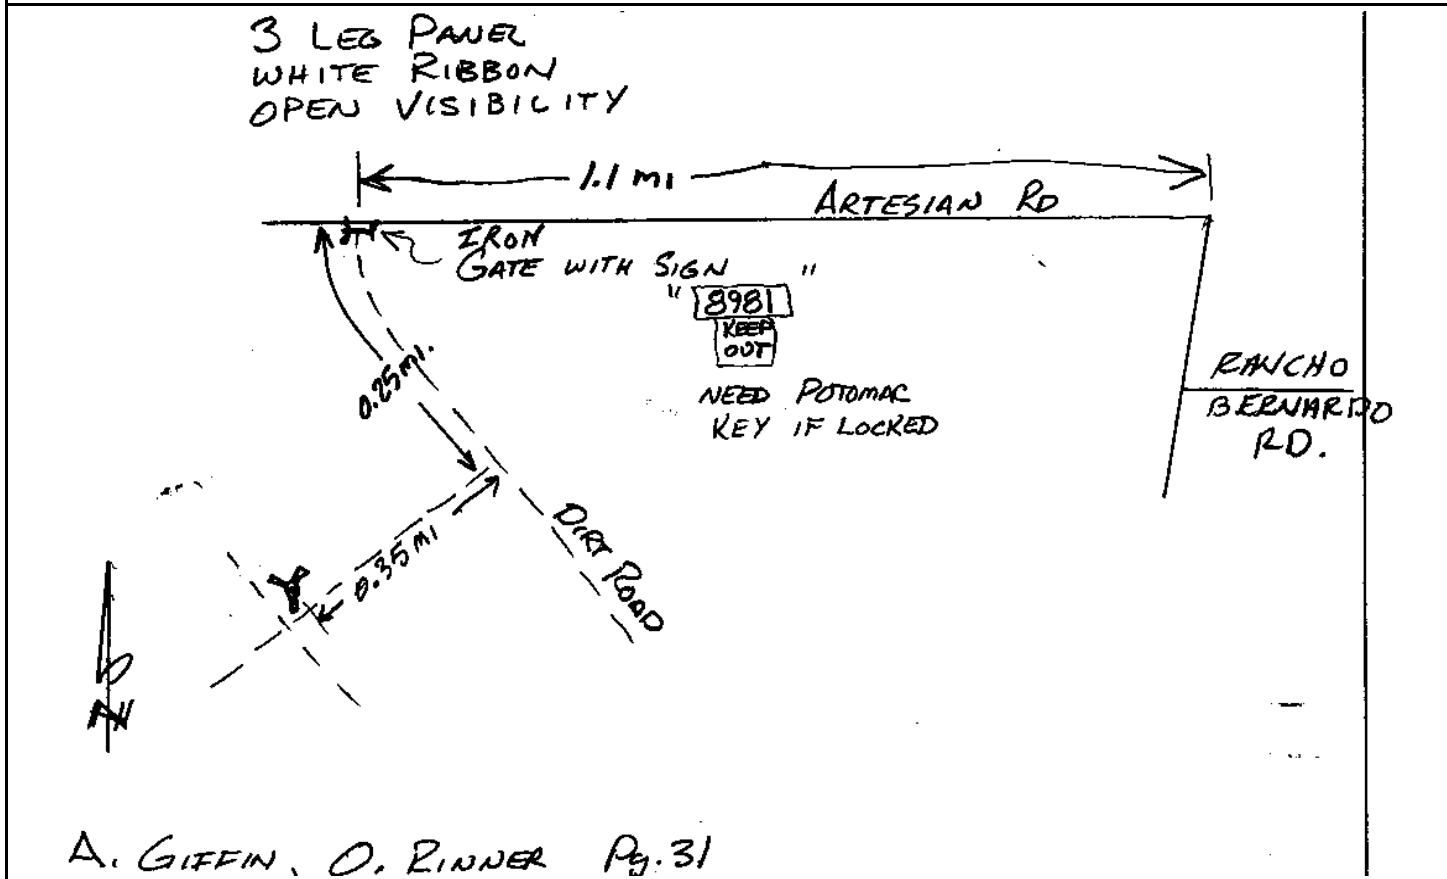 3 LEG PANEL
WHITE RIBBON
OPEN VISIBILITY
1.1 mi
ARTESIAN RD
IRON
GATE WITH SIGN "
" 8981
KEEP
OUT
NEED POTOMAC
KEY IF LOCKED
RANCHO
BERNARDO
RD.
0.25 mi.
0.35 mi
DIRT ROAD
N
A. GIFFIN, O. RINNER Pg. 31